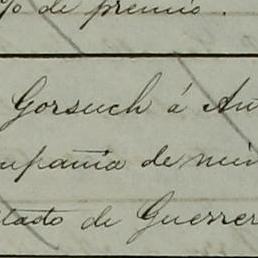 % de premio.
Gorsuch á An
mpañia de min
stado de Guerrer